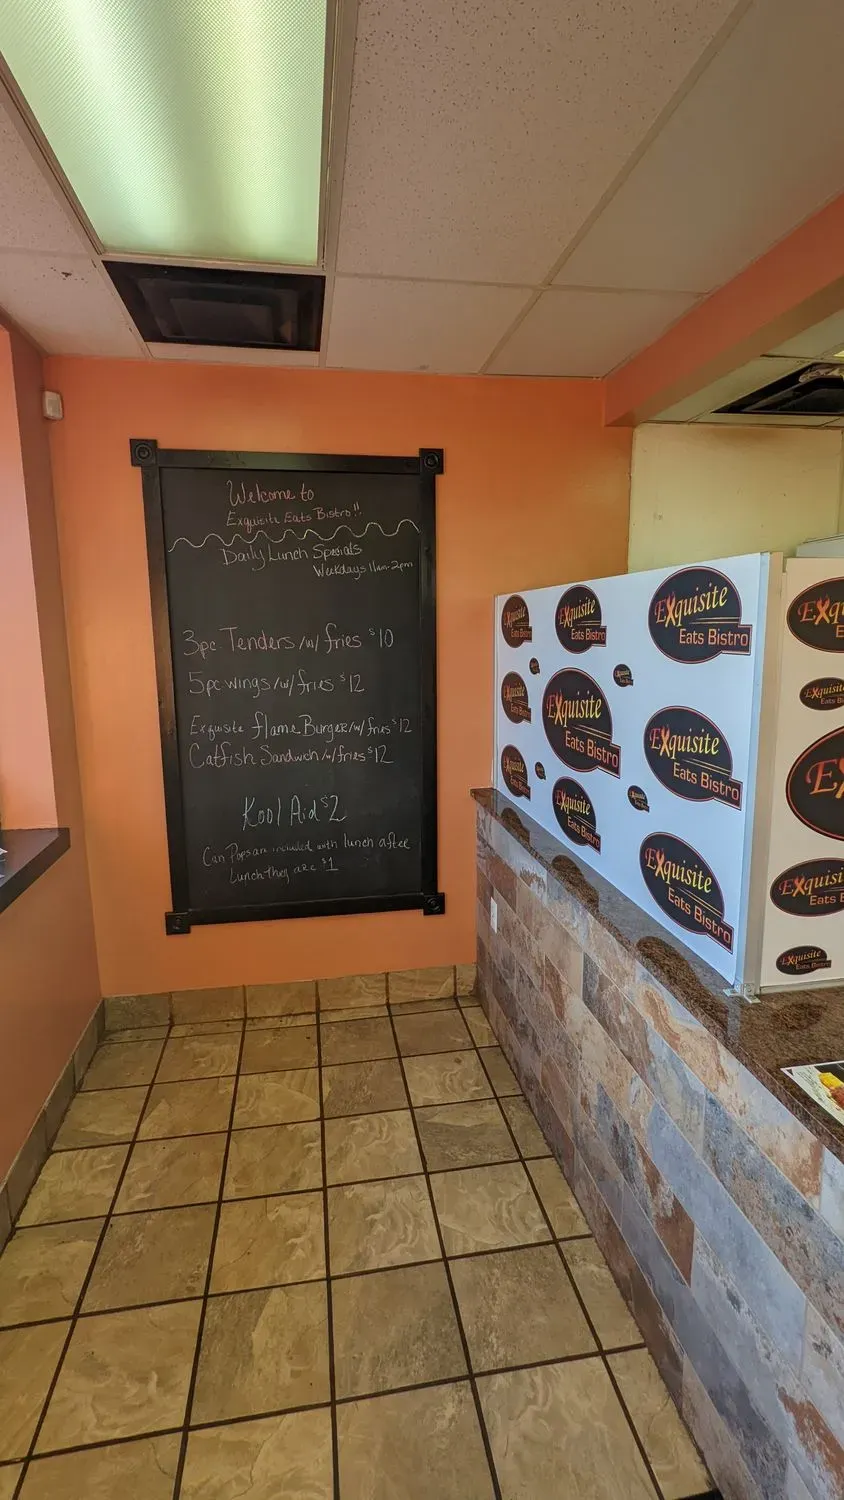 Welcome to
Exquisite Eats Bistro!!
Daily Lunch Specials
Weekdays 11am-2pm
3pc Tenders /w/ fries $10
5pc wings /w/ fries $12
Exquisite flame Burger /w/ fries $12
Catfish Sandwich /w/ fries $12
Kool Aid $2
Can Pops are included with lunch after
Lunch they are $1
Exquisite
Eats Bistro
Exquisite
Eats Bistro
Exquisite
Eats Bistro
Exquisite
Eats Bistro
Exquisite
Eats Bistro
Exquisite
Eats Bistro
Exquisite
Eats Bistro
Exquisite
Eats Bistro
Exquisite
Eats Bistro
Exqu
Eats B
Exquisite
Eats Bis
Ex
Exquisi
Eats B
Exquisite
Eats Bistro